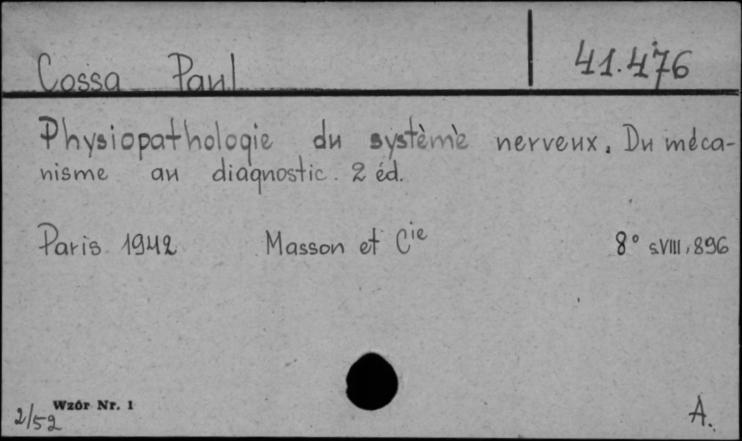 Cossa Paul 41.476
Physiopathologie du système nerveux. Du méca-
nisme au diagnostic. 2 éd.
Paris 1942 Masson et Cie 8° s.VIII, 896
Wzór Nr. 1
2/52 A.